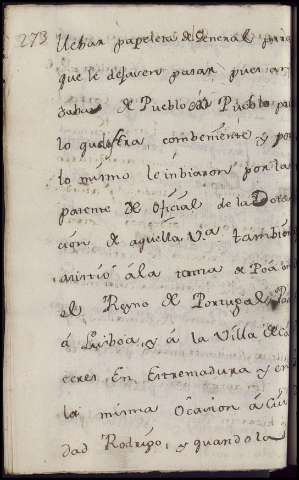 273 llebar papeleta del General para
que le dejasen pasar pues an
daba de Pueblo en Pueblo pa
lo que fuera combeniente, y por
lo mismo le inbiaron por la
patente de Oficial de la Dota
cion de aquella V.a tambien
asistió á la toma de
el Reyno de Portugal, P
á Lisboa, y á la Villa de Ca
ceres, En Estremadura y en
la misma Ocacion á Ciu
dad Rodrigo, y quando la